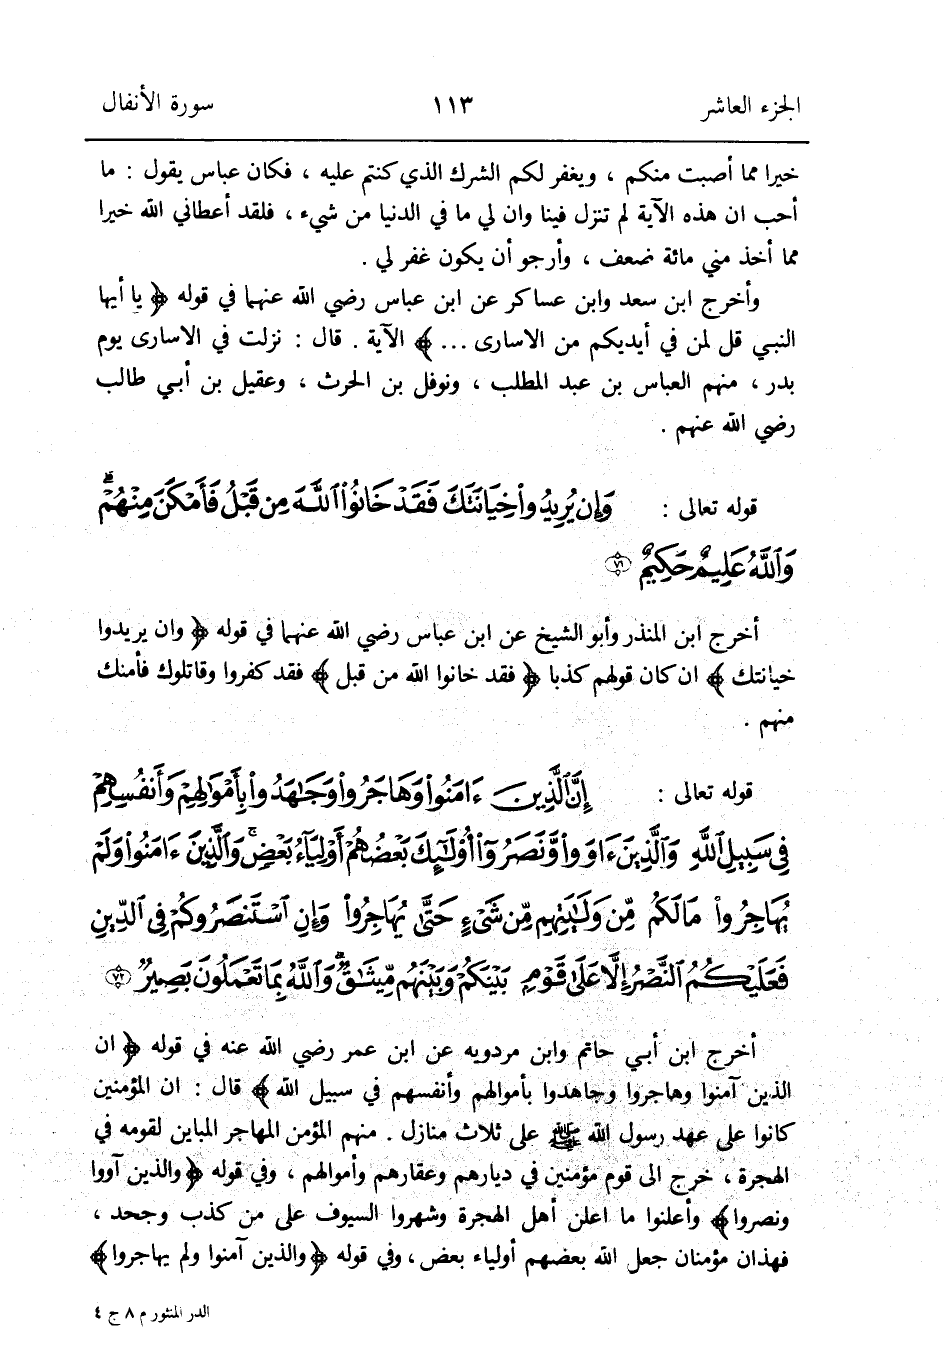 الجزء العاشر ١١٣ سورة الأنفال
خيرا مما أصبت منكم ، ويغفر لكم الشرك الذي كنتم عليه ، فكان عباس يقول : ما
أحب ان هذه الآية لم تنزل فينا وان لي ما في الدنيا من شيء ، فلقد أعطاني الله خيرا
مما أخذ مني مائة ضعف ، وأرجو أن يكون غفر لي .
وأخرج ابن سعد وابن عساكر عن ابن عباس رضي الله عنهما في قوله ﴿ يا أيها
النبي قل لمن في أيديكم من الاسارى ... ﴾ الآية . قال : نزلت في الاسارى يوم
بدر ، منهم العباس بن عبد المطلب ، ونوفل بن الحرث ، وعقيل بن أبي طالب
رضي الله عنهم .
قوله تعالى : وَإِن يُرِيدُواْ خِيَانَتَكَ فَقَدْ خَانُواْ ٱللَّهَ مِن قَبْلُ فَأَمْكَنَ مِنْهُمْۗ
وَٱللَّهُ عَلِيمٌ حَكِيمٌ ﴿٧١﴾
أخرج ابن المنذر وأبو الشيخ عن ابن عباس رضي الله عنهما في قوله ﴿ وان يريدوا
خيانتك ﴾ ان كان قولهم كذبا ﴿ فقد خانوا الله من قبل ﴾ فقد كفروا وقاتلوك فأمنك
منهم .
قوله تعالى : إِنَّ ٱلَّذِينَ ءَامَنُواْ وَهَاجَرُواْ وَجَٰهَدُواْ بِأَمْوَٰلِهِمْ وَأَنفُسِهِمْ
فِي سَبِيلِ ٱللَّهِ وَٱلَّذِينَ ءَاوَواْ وَّنَصَرُوٓاْ أُوْلَٰٓئِكَ بَعْضُهُمْ أَوْلِيَآءُ بَعْضٖۚ وَٱلَّذِينَ ءَامَنُواْ وَلَمْ
يُهَاجِرُواْ مَا لَكُم مِّن وَلَٰيَتِهِم مِّن شَىْءٍ حَتَّىٰ يُهَاجِرُواْ وَإِنِ ٱسْتَنصَرُوكُمْ فِي ٱلدِّينِ
فَعَلَيْكُمُ ٱلنَّصْرُ إِلَّا عَلَىٰ قَوْمٍ بَيْنَكُمْ وَبَيْنَهُم مِّيثَٰقٌۗ وَٱللَّهُ بِمَا تَعْمَلُونَ بَصِيرٌ ﴿٧٢﴾
أخرج ابن أبي حاتم وابن مردويه عن ابن عمر رضي الله عنه في قوله ﴿ ان
الذين آمنوا وهاجروا وجاهدوا بأموالهم وأنفسهم في سبيل الله ﴾ قال : ان المؤمنين
كانوا على عهد رسول الله ﷺ على ثلاث منازل . منهم المؤمن المهاجر المباين لقومه في
الهجرة ، خرج الى قوم مؤمنين في ديارهم وعقارهم وأموالهم ، وفي قوله ﴿ والذين آووا
ونصروا ﴾ وأعلنوا ما اعلن أهل الهجرة وشهروا السيوف على من كذب وجحد ،
فهذان مؤمنان جعل الله بعضهم أولياء بعض ، وفي قوله ﴿ والذين آمنوا ولم يهاجروا ﴾
الدر المنثور م ٨ ج ٤